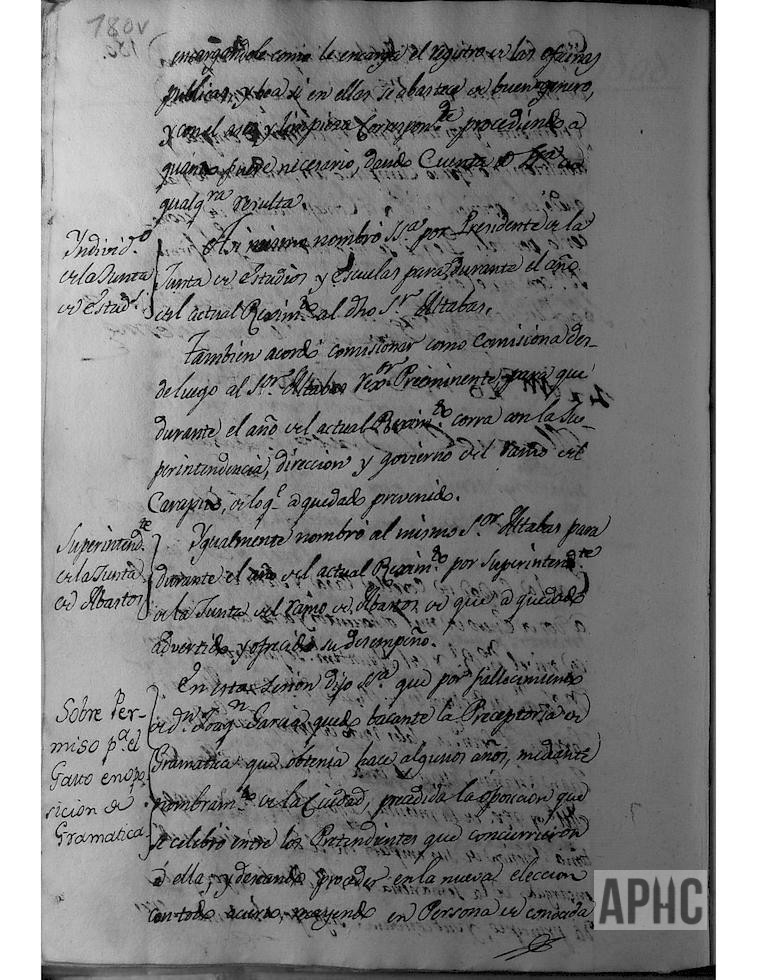 180v
130.
encargandole como le encarga el registro de las oficinas
publicas, y vea si en ellas se abastece de buen genero,
y con el aseo y limpieza correspond.te procediendo a
quanto fuere necesario, dando Cuenta a S.Sa de
qualq.ra resulta.
Individ.o
de la Junta
de Estud.s
Asi mismo nombró S.Sa por Presidente de la
Junta de estudios y escuelas para durante el año
del actual Rexim.to al dho S.r Altabas.
Tambien acordó comisionar como comisiona des-
de luego al S.or Altabas rexor Preeminente, para que
durante el año del actual Rexim.to corra con la Su-
perintendencia, direccion y govierno del ramo del
Carapito, de loq.e a quedado prevenido.
Superintend.te
de la Junta
de Abastos
Ygualmente nombró al mismo S.or Altabas para
durante el año del actual Rexim.to por Superintend.te
de la Junta del ramo de Abastos, de que a quedado
advertido y ofrecido su desempeño.
Sobre Per-
miso p.a el
Gasto en opo
sicion de
Gramatica.
En esta sesion dijo S.Sa que por fallecimiento
de d.n Joaq.n Garcia quedo bacante la Preceptoria de
Gramatica que obtenia hace algunos años, mediante
nombram.to de la Ciudad, precedida la oposicion que
se celebró entre los Pretendientes que concurrieron
á ella; y deseando proceder en la nueva eleccion
con todo acierto, recayendo en Persona de conocida
APHC